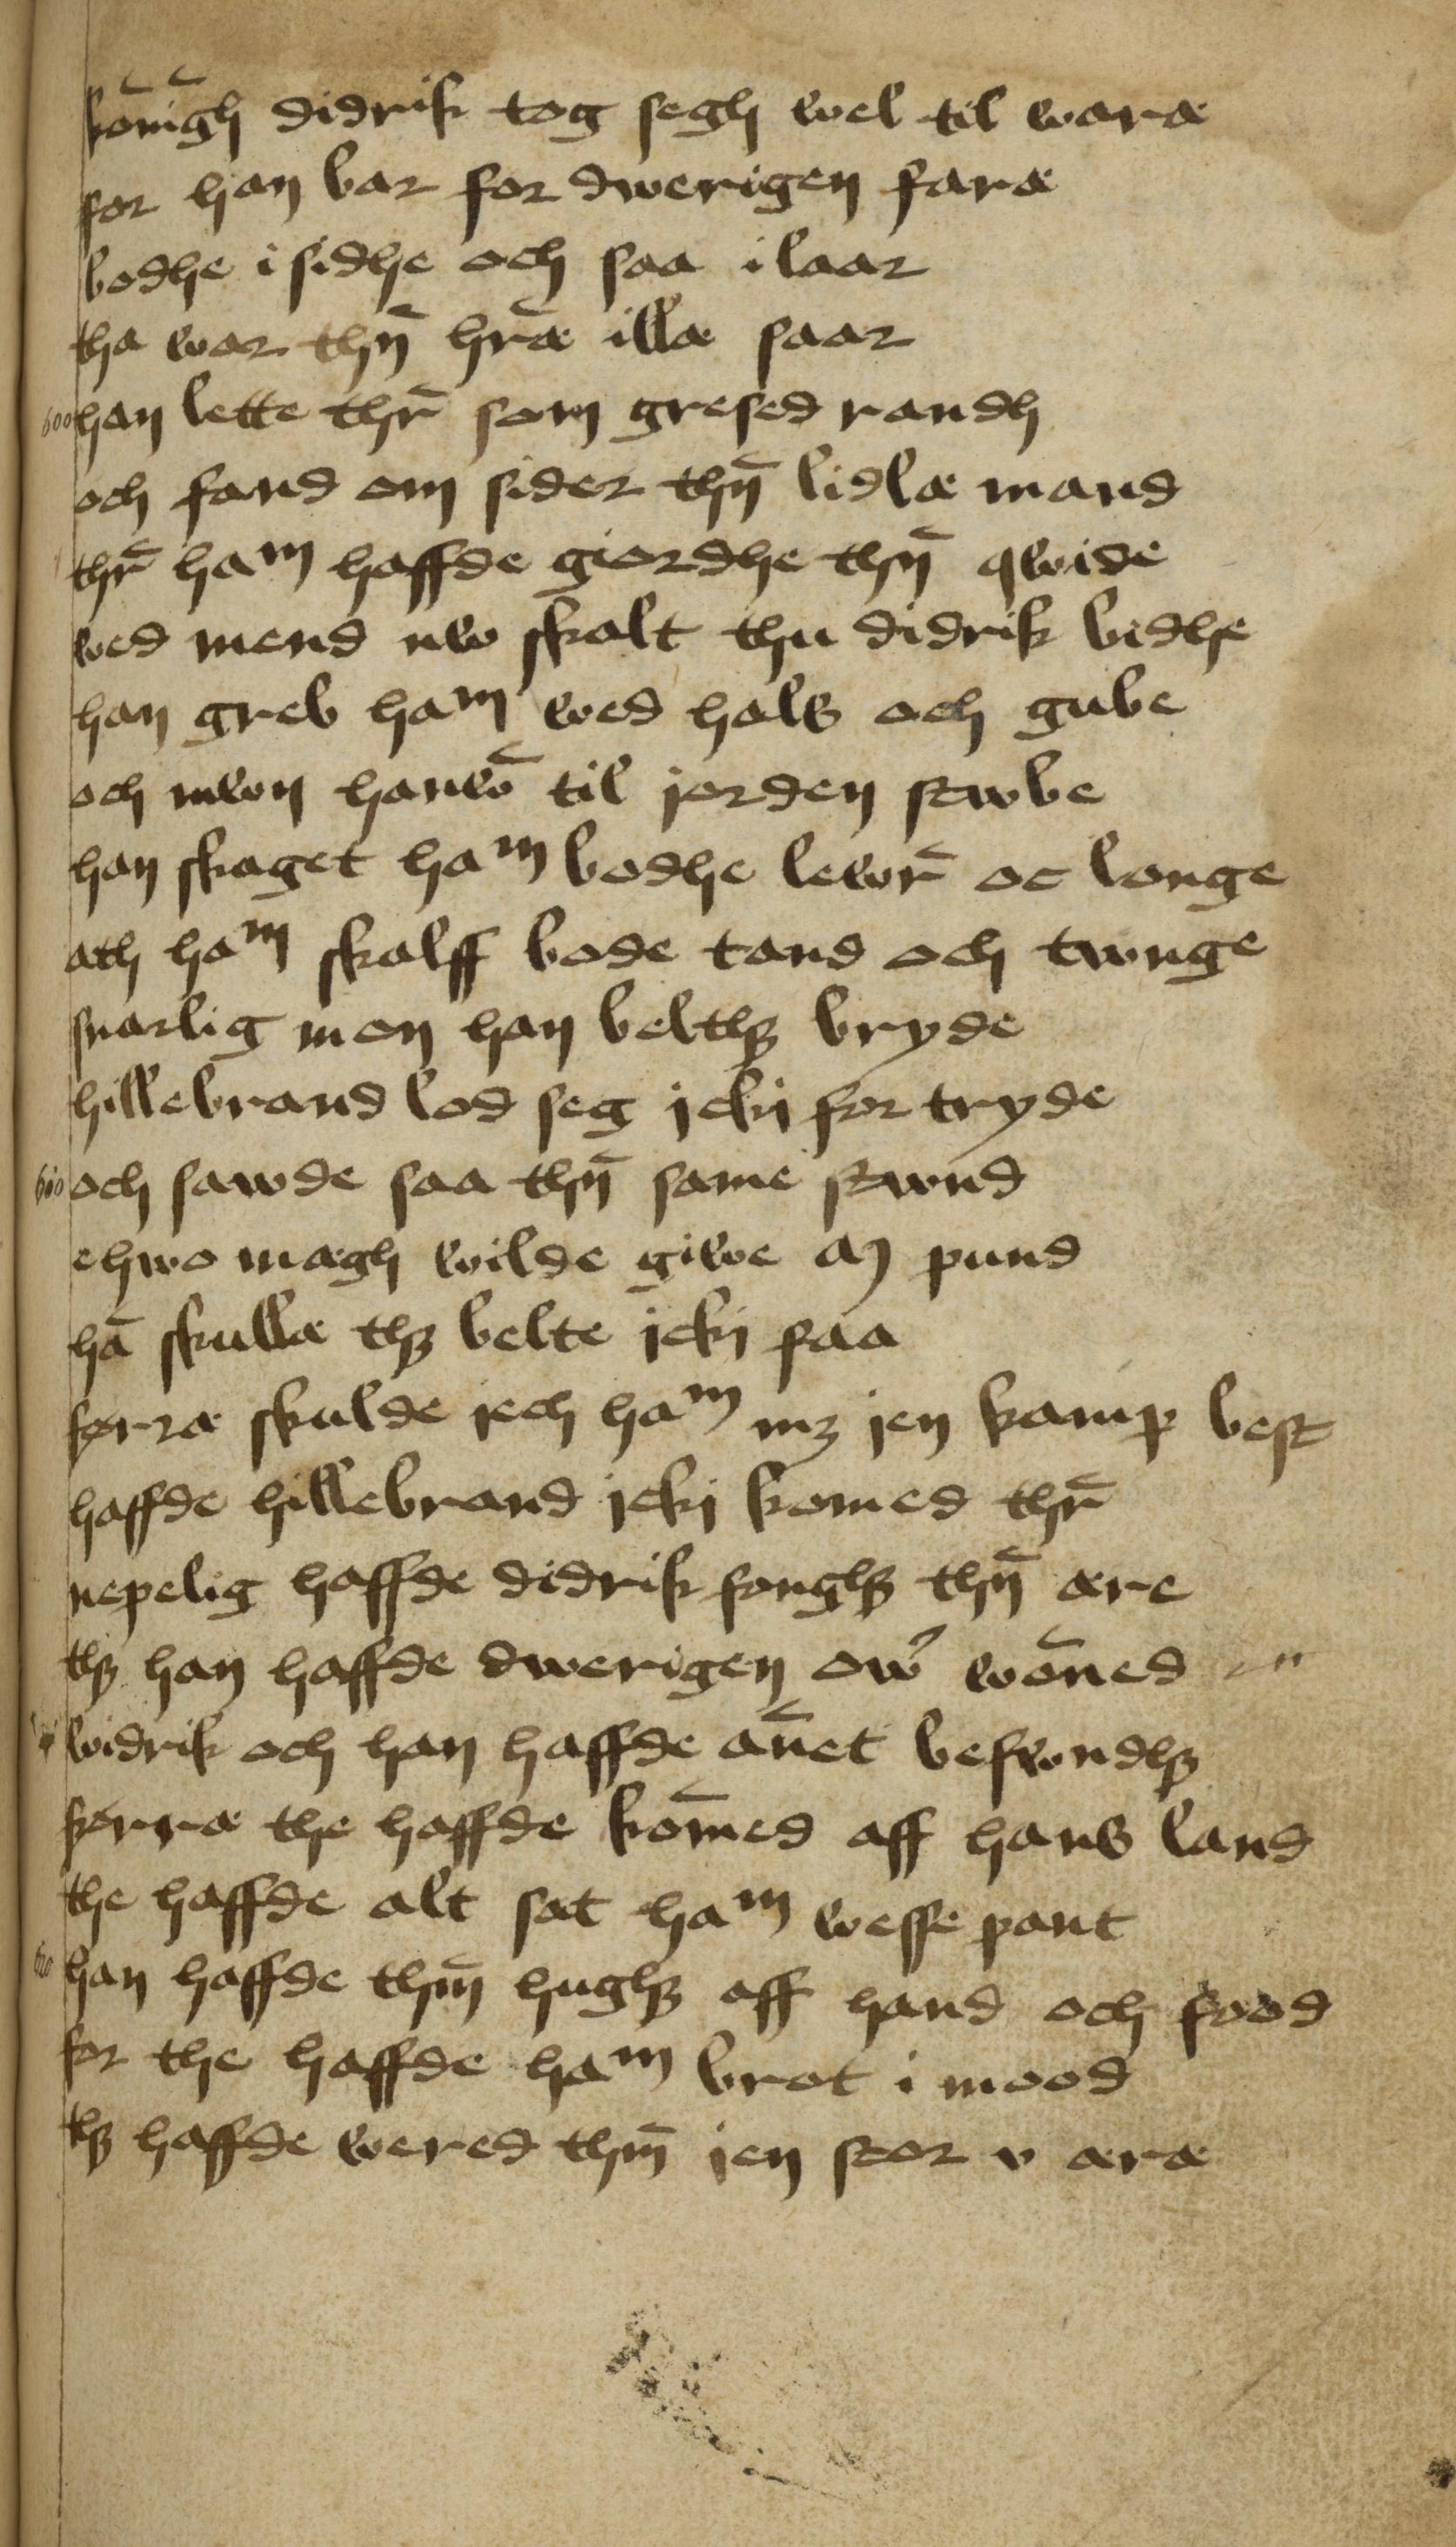 kōnīgh didrik tog segh wel til waræ
for han bar for dwerigen faræ
bodhe i sidhe och saa i laar
tha war thn̄ hr̄æ illæ saar
600 han lette thr̄ som gresed randh
och fand om sider thn̄ lidlæ mand
thr̄ haᵐ haffde giordhe thn̄ qwide
wed mend nw skalt thu didrik bidhe
han greb haᵐ wed hals och gube
och mwn hanwō til jorden stwbe
han skaget haᵐ bodhe lewr̄ oc longe
ath haᵐ skalff bode tand och twnge
snarlig mon han belthꝫ bryde
hillebrand lod seg jckj for tryde
610 och sawde saa thn̄ same stwnd
ehwo mægh wilde giwe m pund
hā skullæ thꝫ belte jckj faa
førræ skulde jech haᵐ mꝫ jen kamp best
haffde hillebrand jckj komed thr̄
nepelig haffde didrik fonghꝫ thn̄ ære
thꝫ han haffde dwerigen ow̉ wōned
widrik och han haffde an̄et befwndhꝫ
førræ the haffde kōmed aff hans land
the haffde alt sat haᵐ wesse pant
620 han haffde thm̄ hughꝫ aff hand och food
for the haffde haᵐ brot i mood
thꝫ haffde wered thm̄ jen stor v æræ